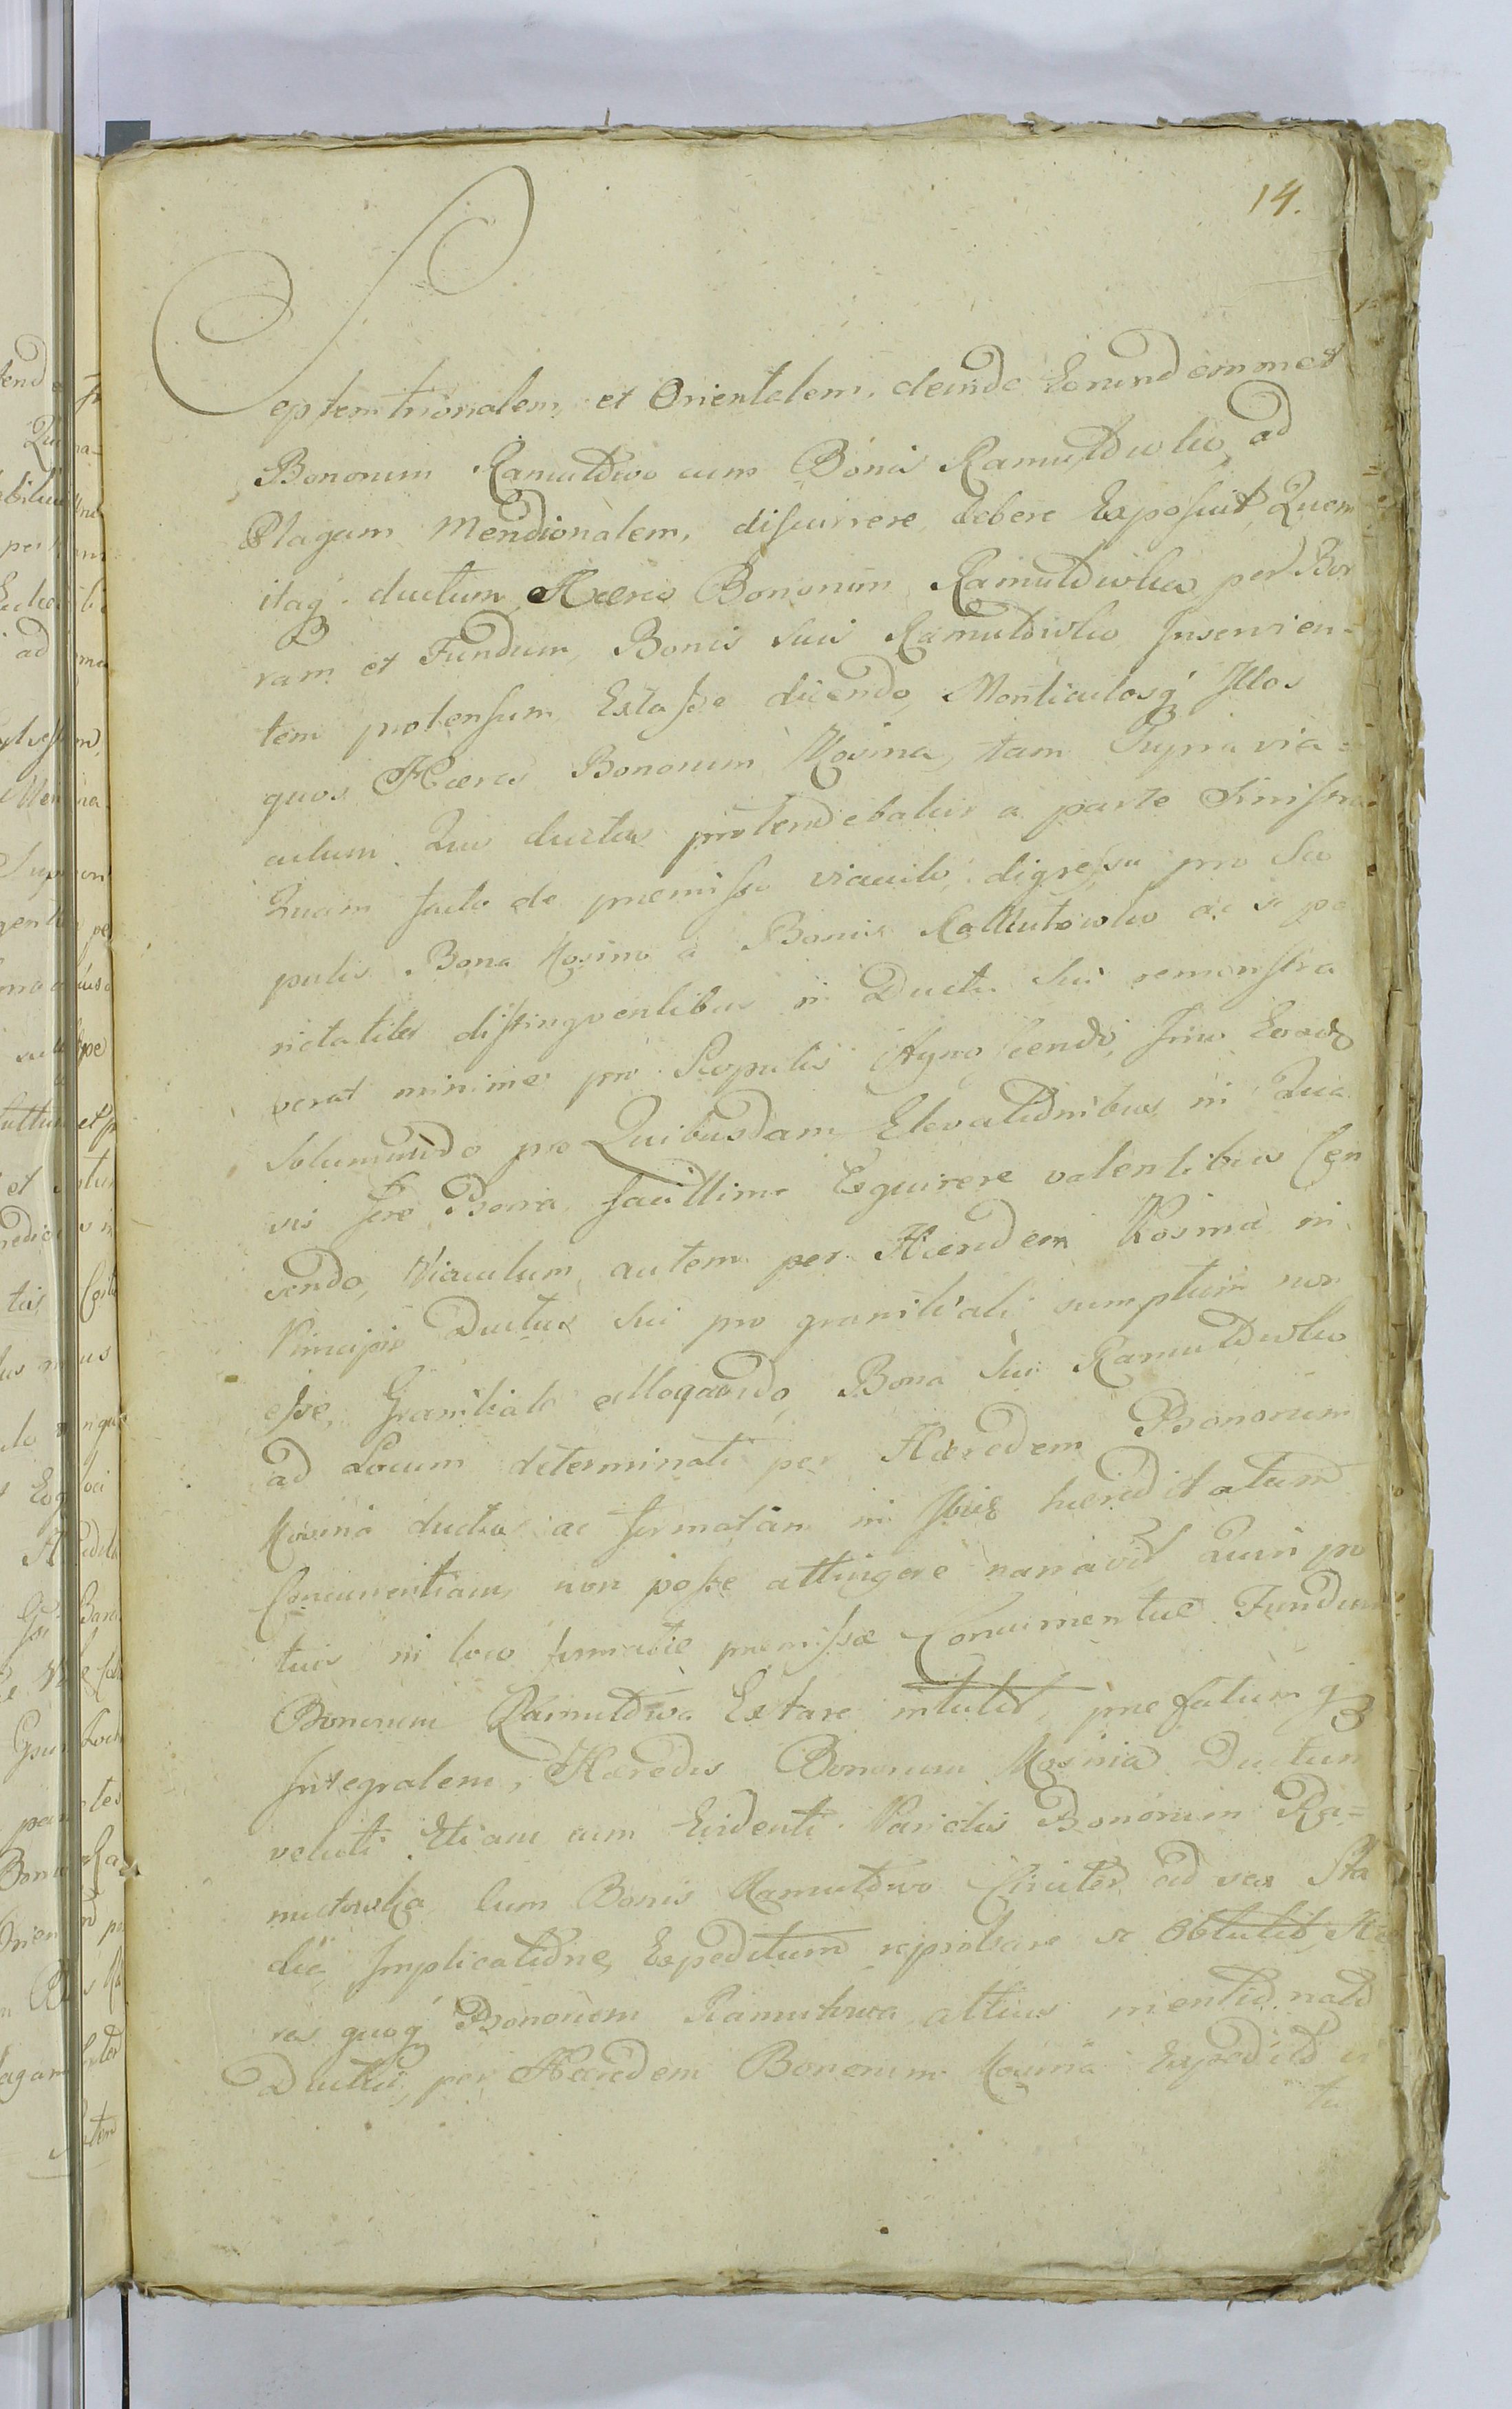 14.
Septemtrionalem, et Orientalem, deinde Eorundemmet
Bonorum Ramutowo cum Bonis Ramutowko, ad
Plagam Meridionalem, discurrere debere Exposuit, Quem
itaq. ductum Hæres Bonorum Ramutowko per Bor
ram et Fundum, Bonis suis Ramutowko Inservien-
tem protensum Extasse dicendo, Monticulosq. Illos
quos Hæres Bonorum Kosina, tam Supra via-
culum Quo ductus protendebatur a parte Sinistra
Quam facto de præmisso viaculo, digressu pro Sco
pulis Bona Kosino a Bonis Ramutowko ac se pa
rietatiter distingventibus in Ductu Sui remonstra
verat minime pro Scopulis Agnoscendo, Imo Eos
Solummodo pro Quibusdam Elevationibus in Qua
vis fere Borra facillime Exquirere valentibus Cen
sendo, Viaculum autem per Hæredem Kosina in
Principio Ductus Sui pro granitiali sumptum non
esse, Granitiale allegando, Bona Sui Ramutowko
ad Locum determinati per Hæredem Bonorum
Kosino ductus ac formatam in hæreditatum
Concurrentiam, non posse attingere narravit Quin po
tius in loco formatæ præmissæ Fundum
Bonorum Ramutowo Extare intulit, præfatumq
Integralem, Hæredis Bonorum Kosina Ductum
veluti Etiam cum Evidenti Parietis Bonorum Ra=
mutowka Cum Bonis Ramutowo Circiter ad sex Sta
dia Implicatione, Expeditum reprobare se Obtulit, Hæ
res quoq. Bonorum Ramutowa attius mentionato
Ductui, per Hæredem Bonorum Kosina Expedito
tu